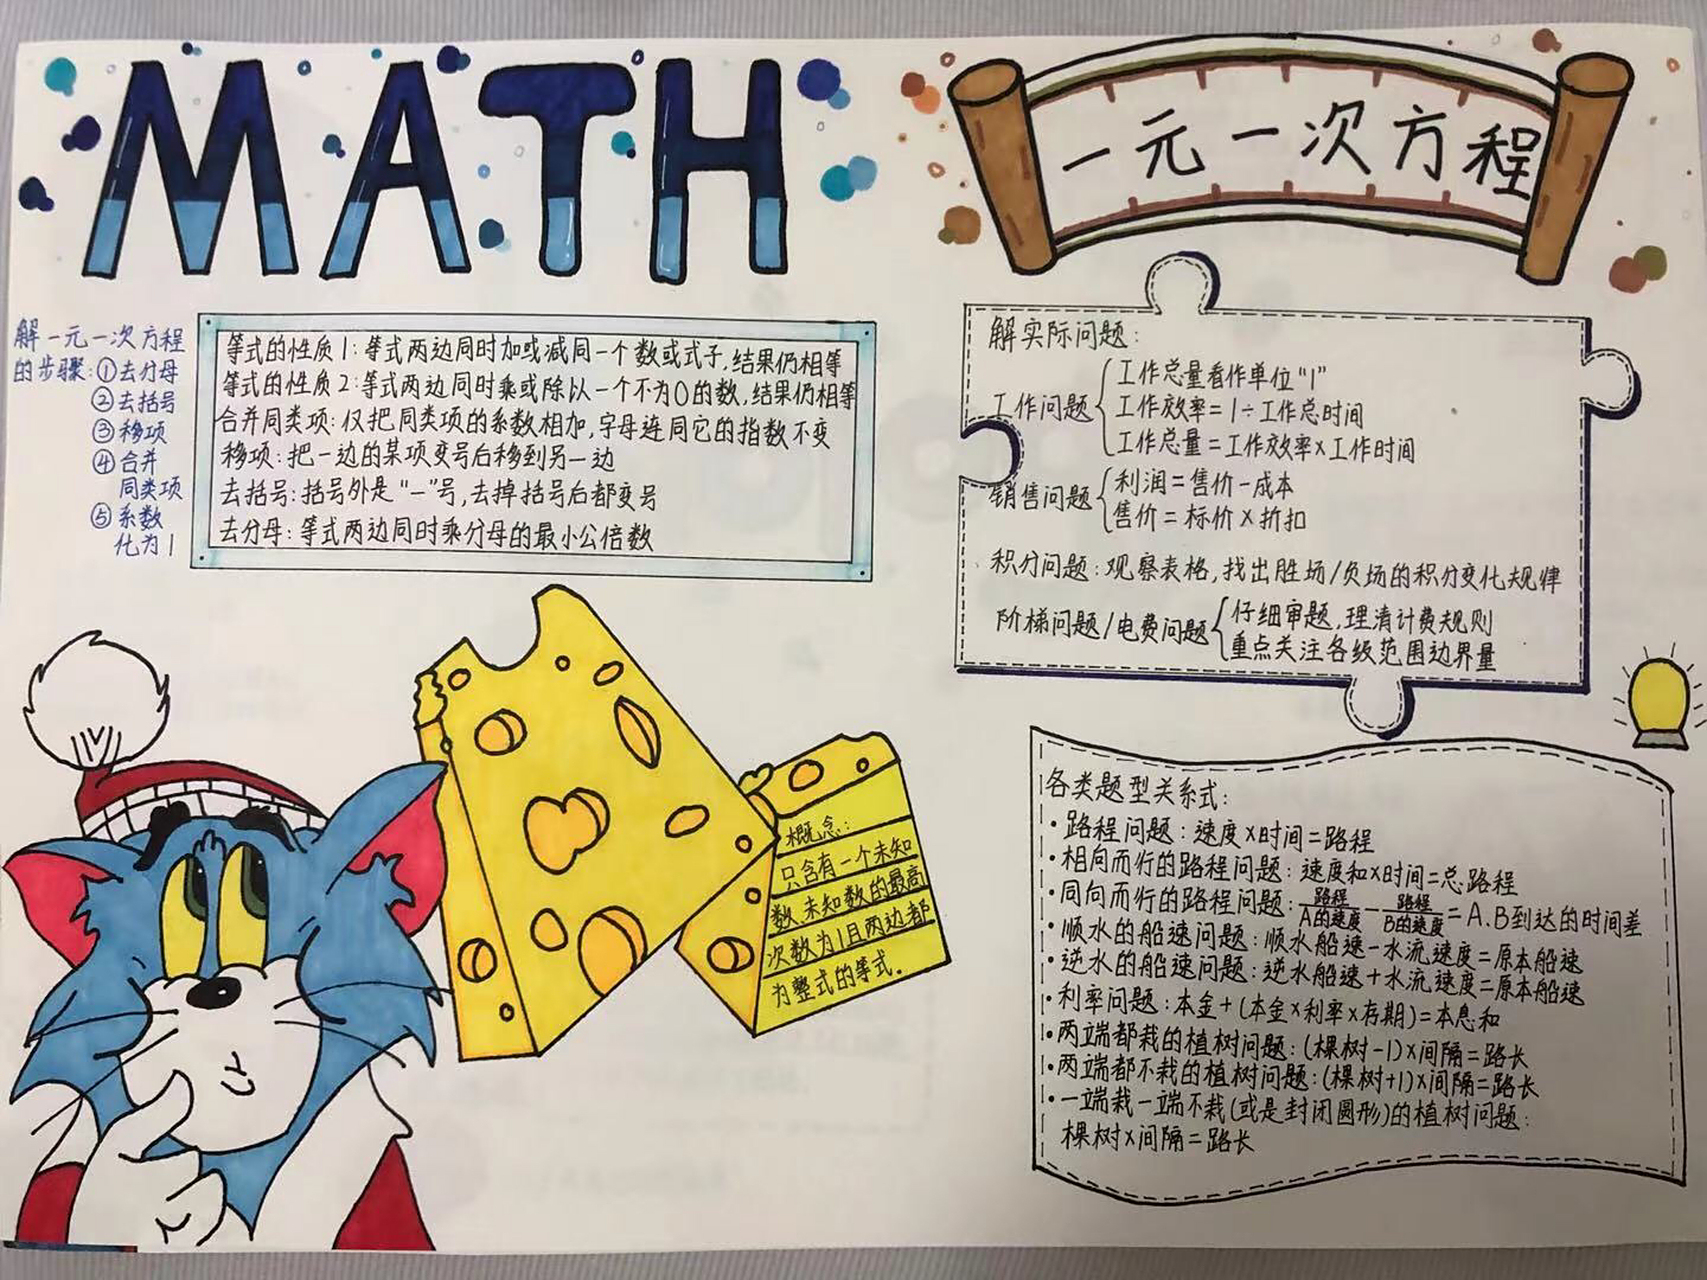 MATH
一元一次方程
解一元一次方程
的步骤:①去分母
②去括号
③移项
④合并
同类项
⑤系数
化为1
等式的性质1:等式两边同时加或减同一个数或式子,结果仍相等
等式的性质2:等式两边同时乘或除以一个不为0的数,结果仍相等
合并同类项:仅把同类项的系数相加,字母连同它的指数不变
移项:把一边的某项变号后移到另一边
去括号:括号外是“—”号,去掉括号后都变号
去分母:等式两边同时乘分母的最小公倍数
概念:
只含有一个未知
数,未知数的最高
次数为1且两边都
为整式的等式.
解实际问题:
工作总量看作单位“1”
工作问题 工作效率=1÷工作总时间
工作总量=工作效率×工作时间
销售问题 利润=售价-成本
售价=标价×折扣
积分问题:观察表格,找出胜场/负场的积分变化规律
阶梯问题/电费问题 仔细审题,理清计费规则
重点关注各级范围边界量
各类题型关系式:
·路程问题:速度×时间=路程
·相向而行的路程问题:速度和×时间=总路程
·同向而行的路程问题:路程/A的速度-路程/B的速度=A.B到达的时间差
·顺水的船速问题:顺水船速-水流速度=原本船速
·逆水的船速问题:逆水船速+水流速度=原本船速
·利率问题:本金+(本金×利率×存期)=本息和
·两端都栽的植树问题:(棵树-1)×间隔=路长
·两端都不栽的植树问题:(棵树+1)×间隔=路长
·一端栽一端不栽(或是封闭圆形)的植树问题:
棵树×间隔=路长